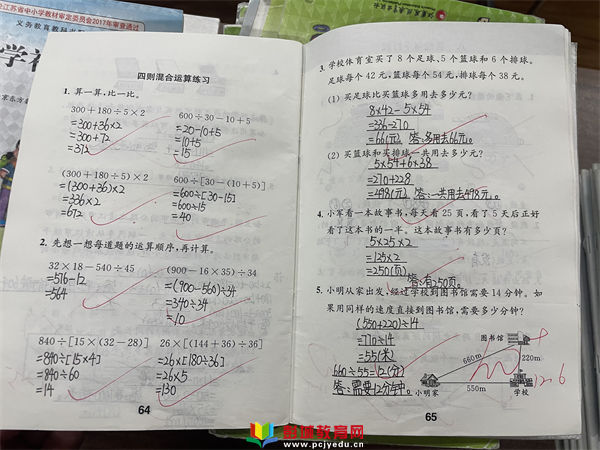 全江苏省中小学教材审定委员会2017年审查通过
义务教育教科书
四则混合运算练习
1. 算一算,比一比。
300+180÷5×2
=300+36×2
=300+72
=372
600÷30-10+5
=20-10+5
=10+5
=15
(300+180÷5)×2
=(300+36)×2
=336×2
=672
600÷[30-(10+5)]
=600÷[30-15]
=600÷15
=40
2. 先想一想每道题的运算顺序,再计算。
32×18-540÷45
=576-12
=564
(900-16×35)÷34
=(900-560)÷34
=340÷34
=10
840÷[15×(32-28)]
=840÷[15×4]
=840÷60
=14
26×[(144+36)÷36]
=26×[180÷36]
=26×5
=130
64
3. 学校体育室买了8个足球、5个篮球和6个排球。
足球每个42元,篮球每个54元,排球每个38元。
(1) 买足球比买篮球多用去多少元?
8×42-5×54
=336-270
=66(元) 答:多用去66元。
(2) 买篮球和买排球一共用去多少元?
5×54+6×38
=270+228
=498(元) 答:一共用去498元。
4. 小军看一本故事书,每天看25页,看了5天后正好
看了这本书的一半。这本故事书有多少页?
5×25×2
=125×2
=250(页)
答:有250页。
5. 小明从家出发,经过学校到图书馆需要14分钟。如
果用同样的速度直接到图书馆,需要多少分钟?
(550+220)÷14
=770÷14
=55(米)
660÷55=12(分)
答:需要12分钟。
图书馆
660m
220m
小明家
550m
学校
12.6
65
金球教育网
www.pcjyedu.cn